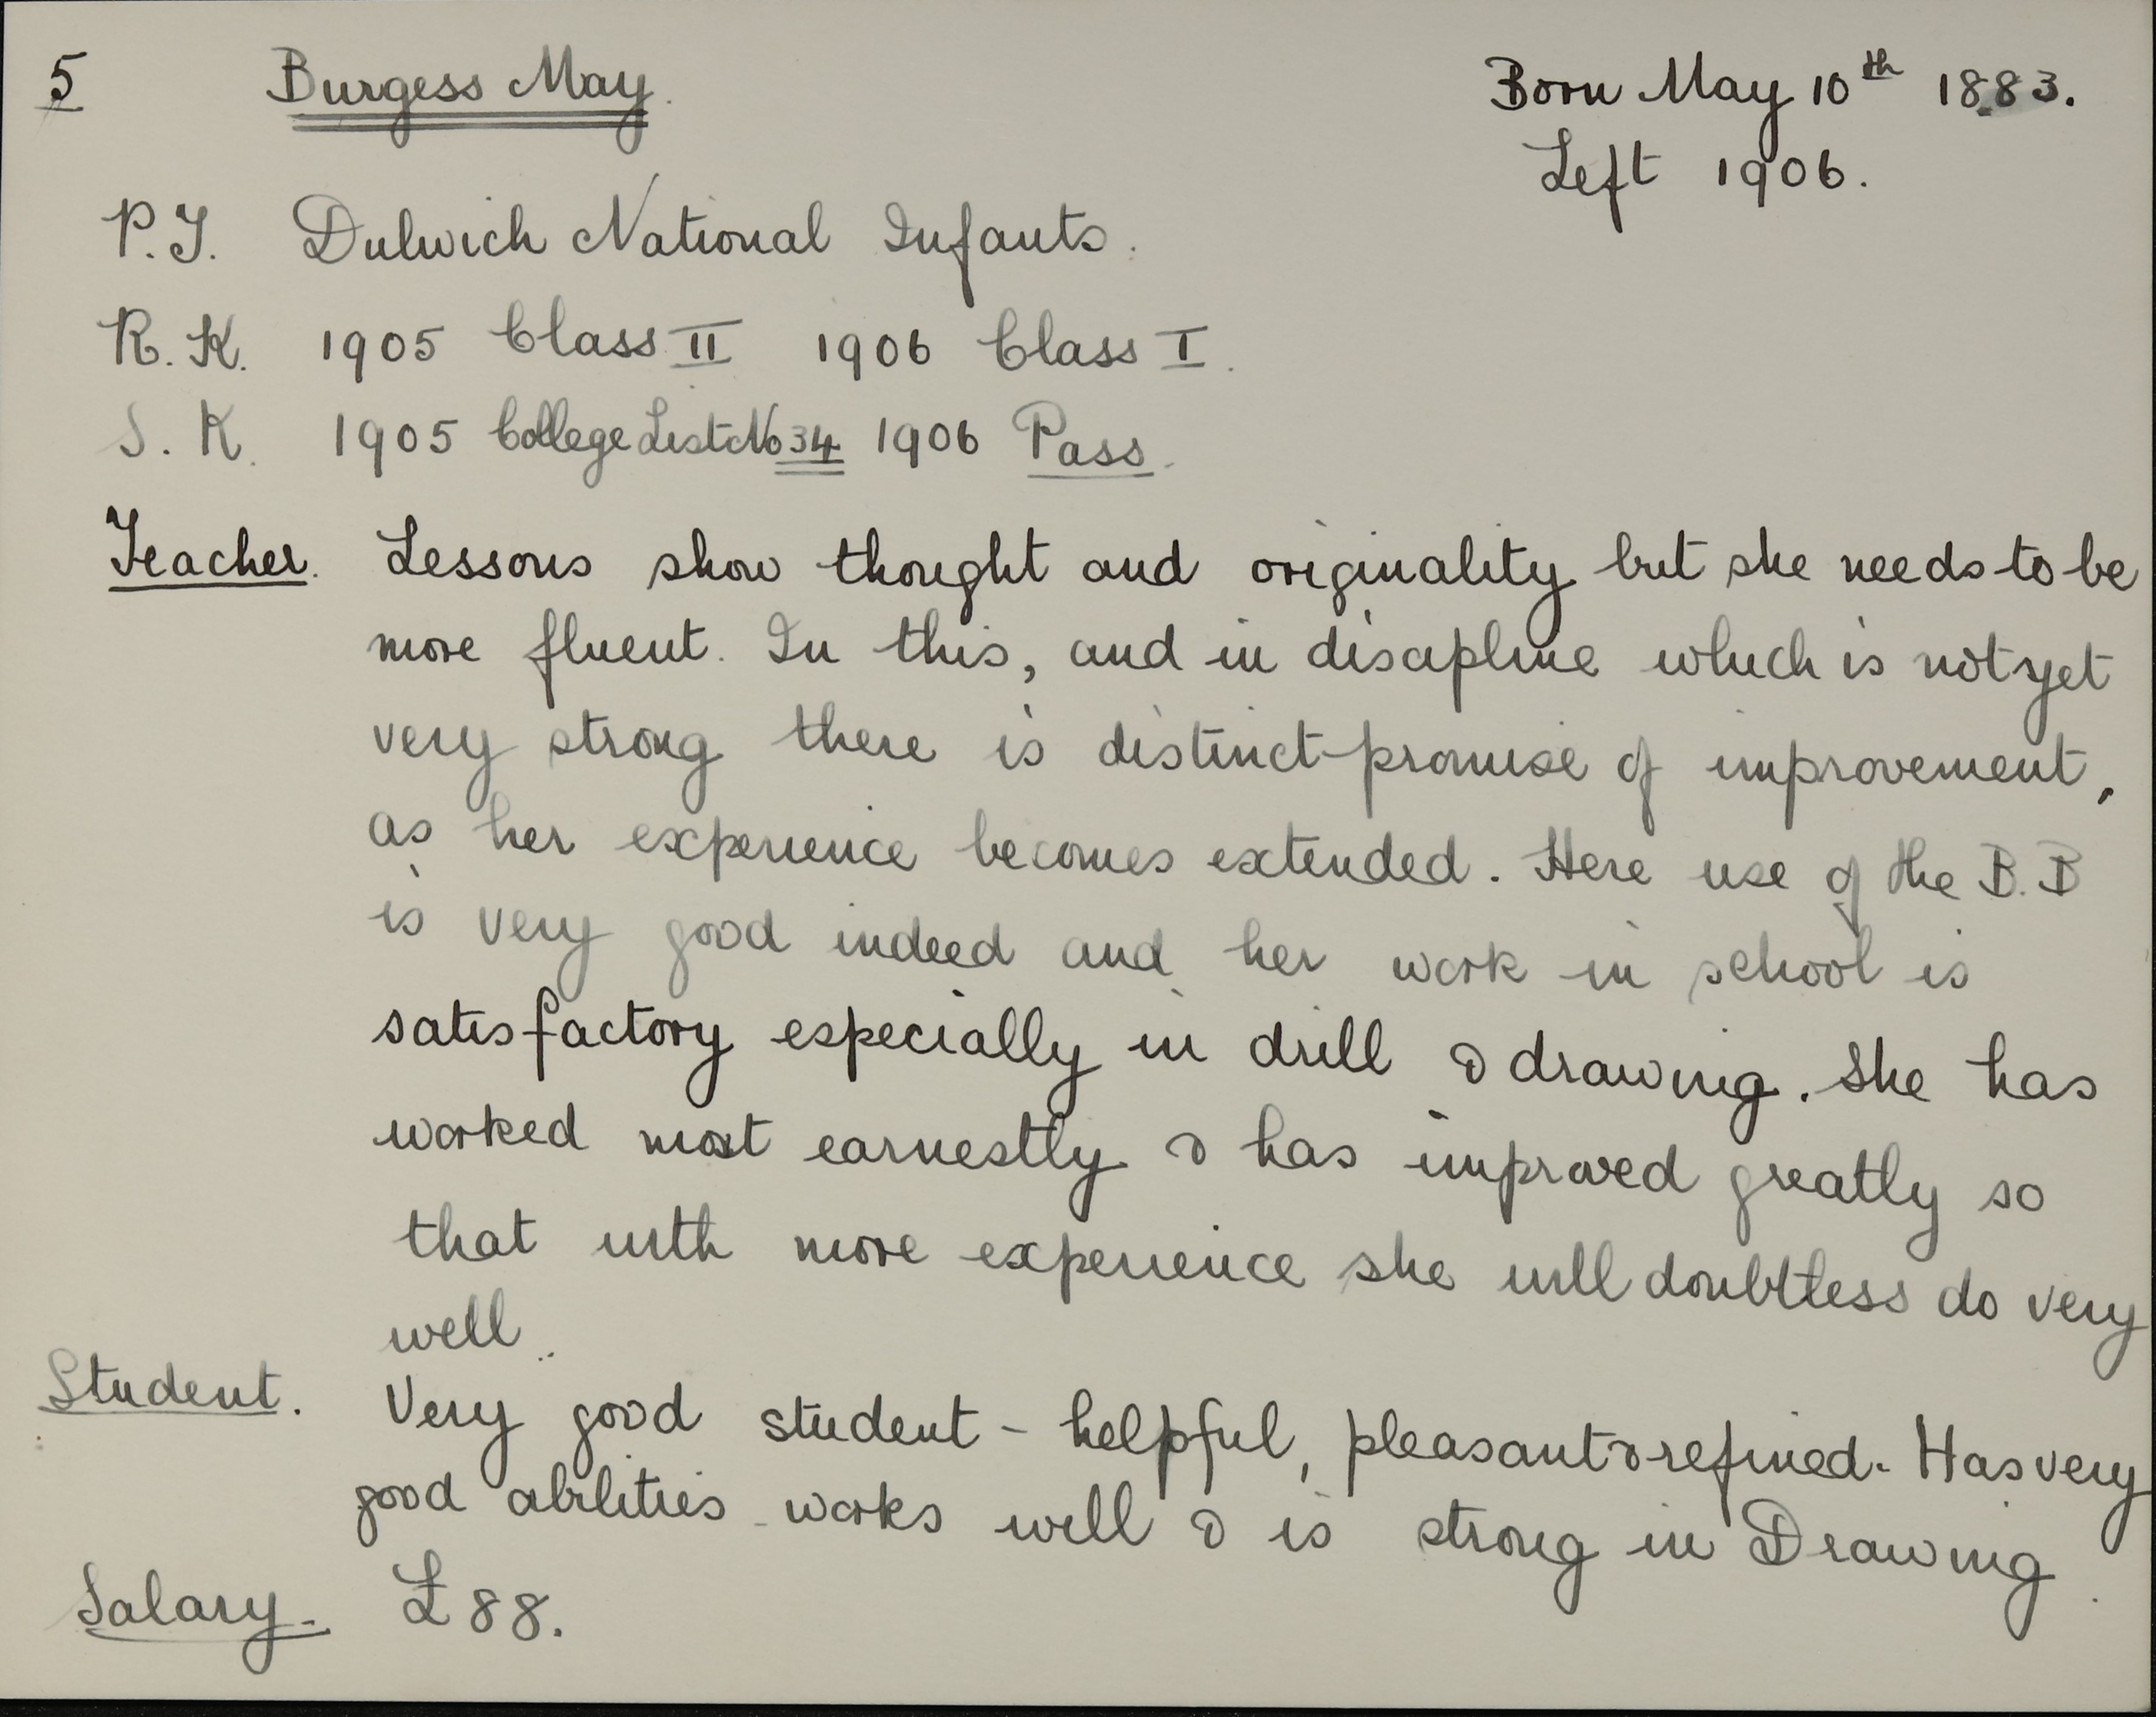 5 Burgess May. Born May 10th 1883.
Left 1906.
P.T. Dulwich National Infants.
R.K. 1905 Class II 1906 Class I.
S.K. 1905 College List No 34 1906 Pass.
Teacher. Lessons show thought and originality but she needs to be
more fluent. In this, and in discipline which is not yet
very strong there is distinct promise of improvement,
as her experience becomes extended. Here use of the B.B
is very good indeed and her work in school is
satisfactory especially in drill & drawing. She has
worked most earnestly & has improved greatly so
that with more experience she will doubtless do very
well.
Student. Very good student - helpful, pleasant & refined. Has very
good abilities - works well & is strong in Drawing.
Salary - £88.